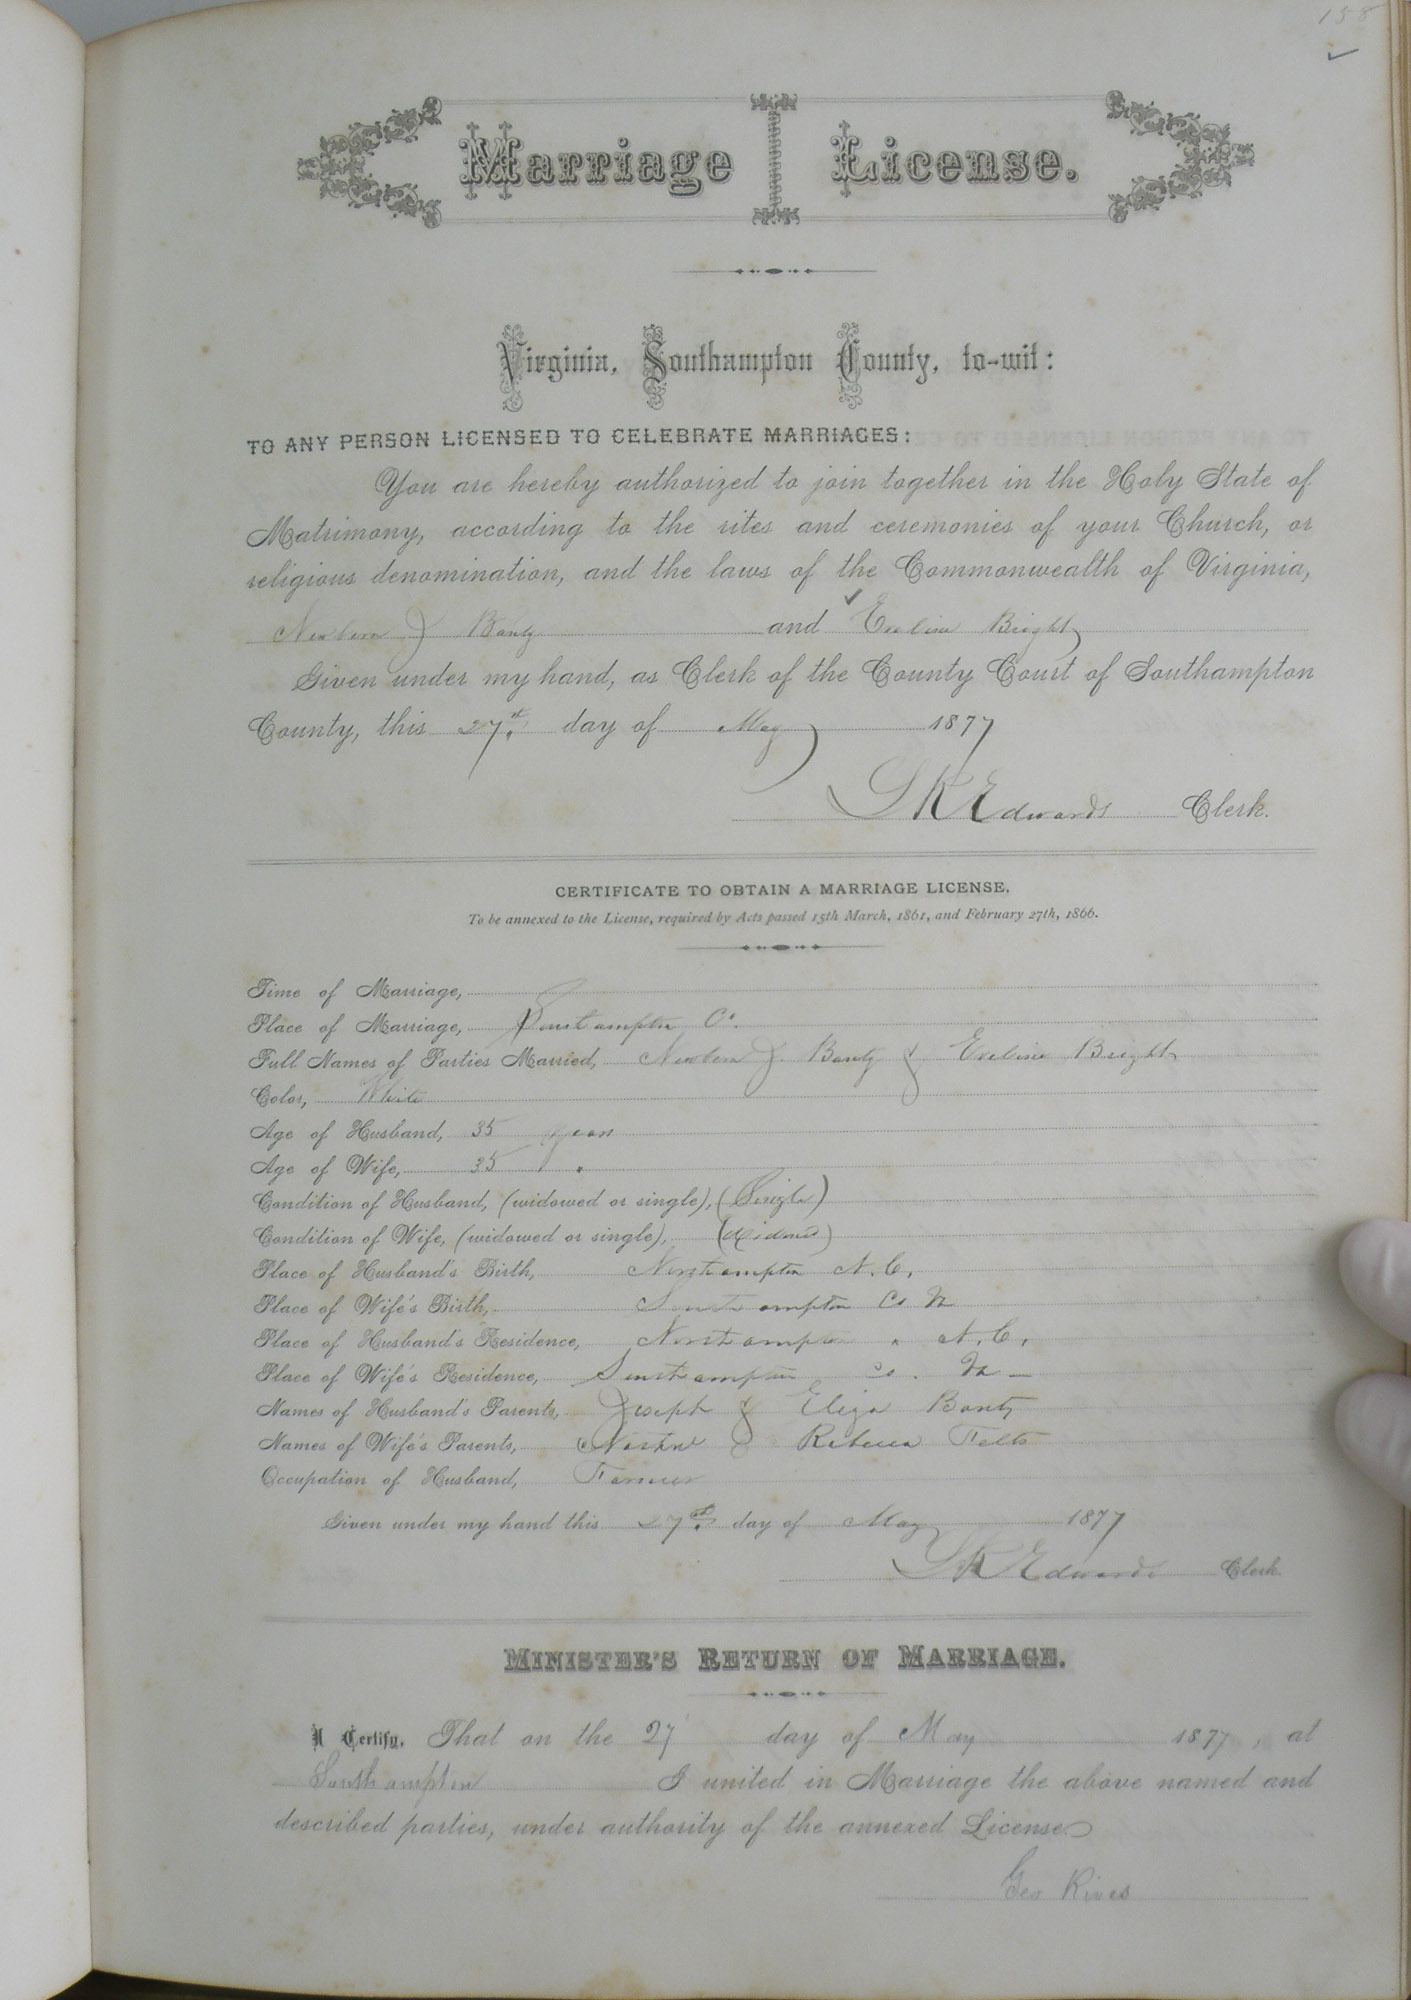 158
Marriage License.
Virginia, Southampton County, to-wit:
TO ANY PERSON LICENSED TO CELEBRATE MARRIAGES:
You are hereby authorized to join together in the Holy State of
Matrimony, according to the rites and ceremonies of your Church, or
religious denomination, and the laws of the Commonwealth of Virginia,
J and Eveline Bright
Given under my hand, as Clerk of the County Court of Southampton
County, this 27th day of May 1877
L R Edwards Clerk.
CERTIFICATE TO OBTAIN A MARRIAGE LICENSE.
To be annexed to the License, required by Acts passed 15th March, 1861, and February 27th, 1866.
Time of Marriage,
Place of Marriage, Southampton Co.
Full Names of Parties Married, J. & Eveline Bright
Color, White
Age of Husband, 35 years
Age of Wife, 35 "
Condition of Husband, (widowed or single), (Single)
Condition of Wife, (widowed or single), (Widowed)
Place of Husband's Birth, Northampton N.C.
Place of Wife's Birth, Southampton Co Va
Place of Husband's Residence, Northampton " N.C.
Place of Wife's Residence, Southampton Co. Va
Names of Husband's Parents, Joseph & Eliza
Names of Wife's Parents, & Rebecca Felts
Occupation of Husband, Farmer
Given under my hand this 27th day of May 1877
L R Edwards Clerk
MINISTER'S RETURN OF MARRIAGE.
I Certify, That on the 27 day of May 1877, at
Southampton I united in Marriage the above named and
described parties, under authority of the annexed License
Geo Rives